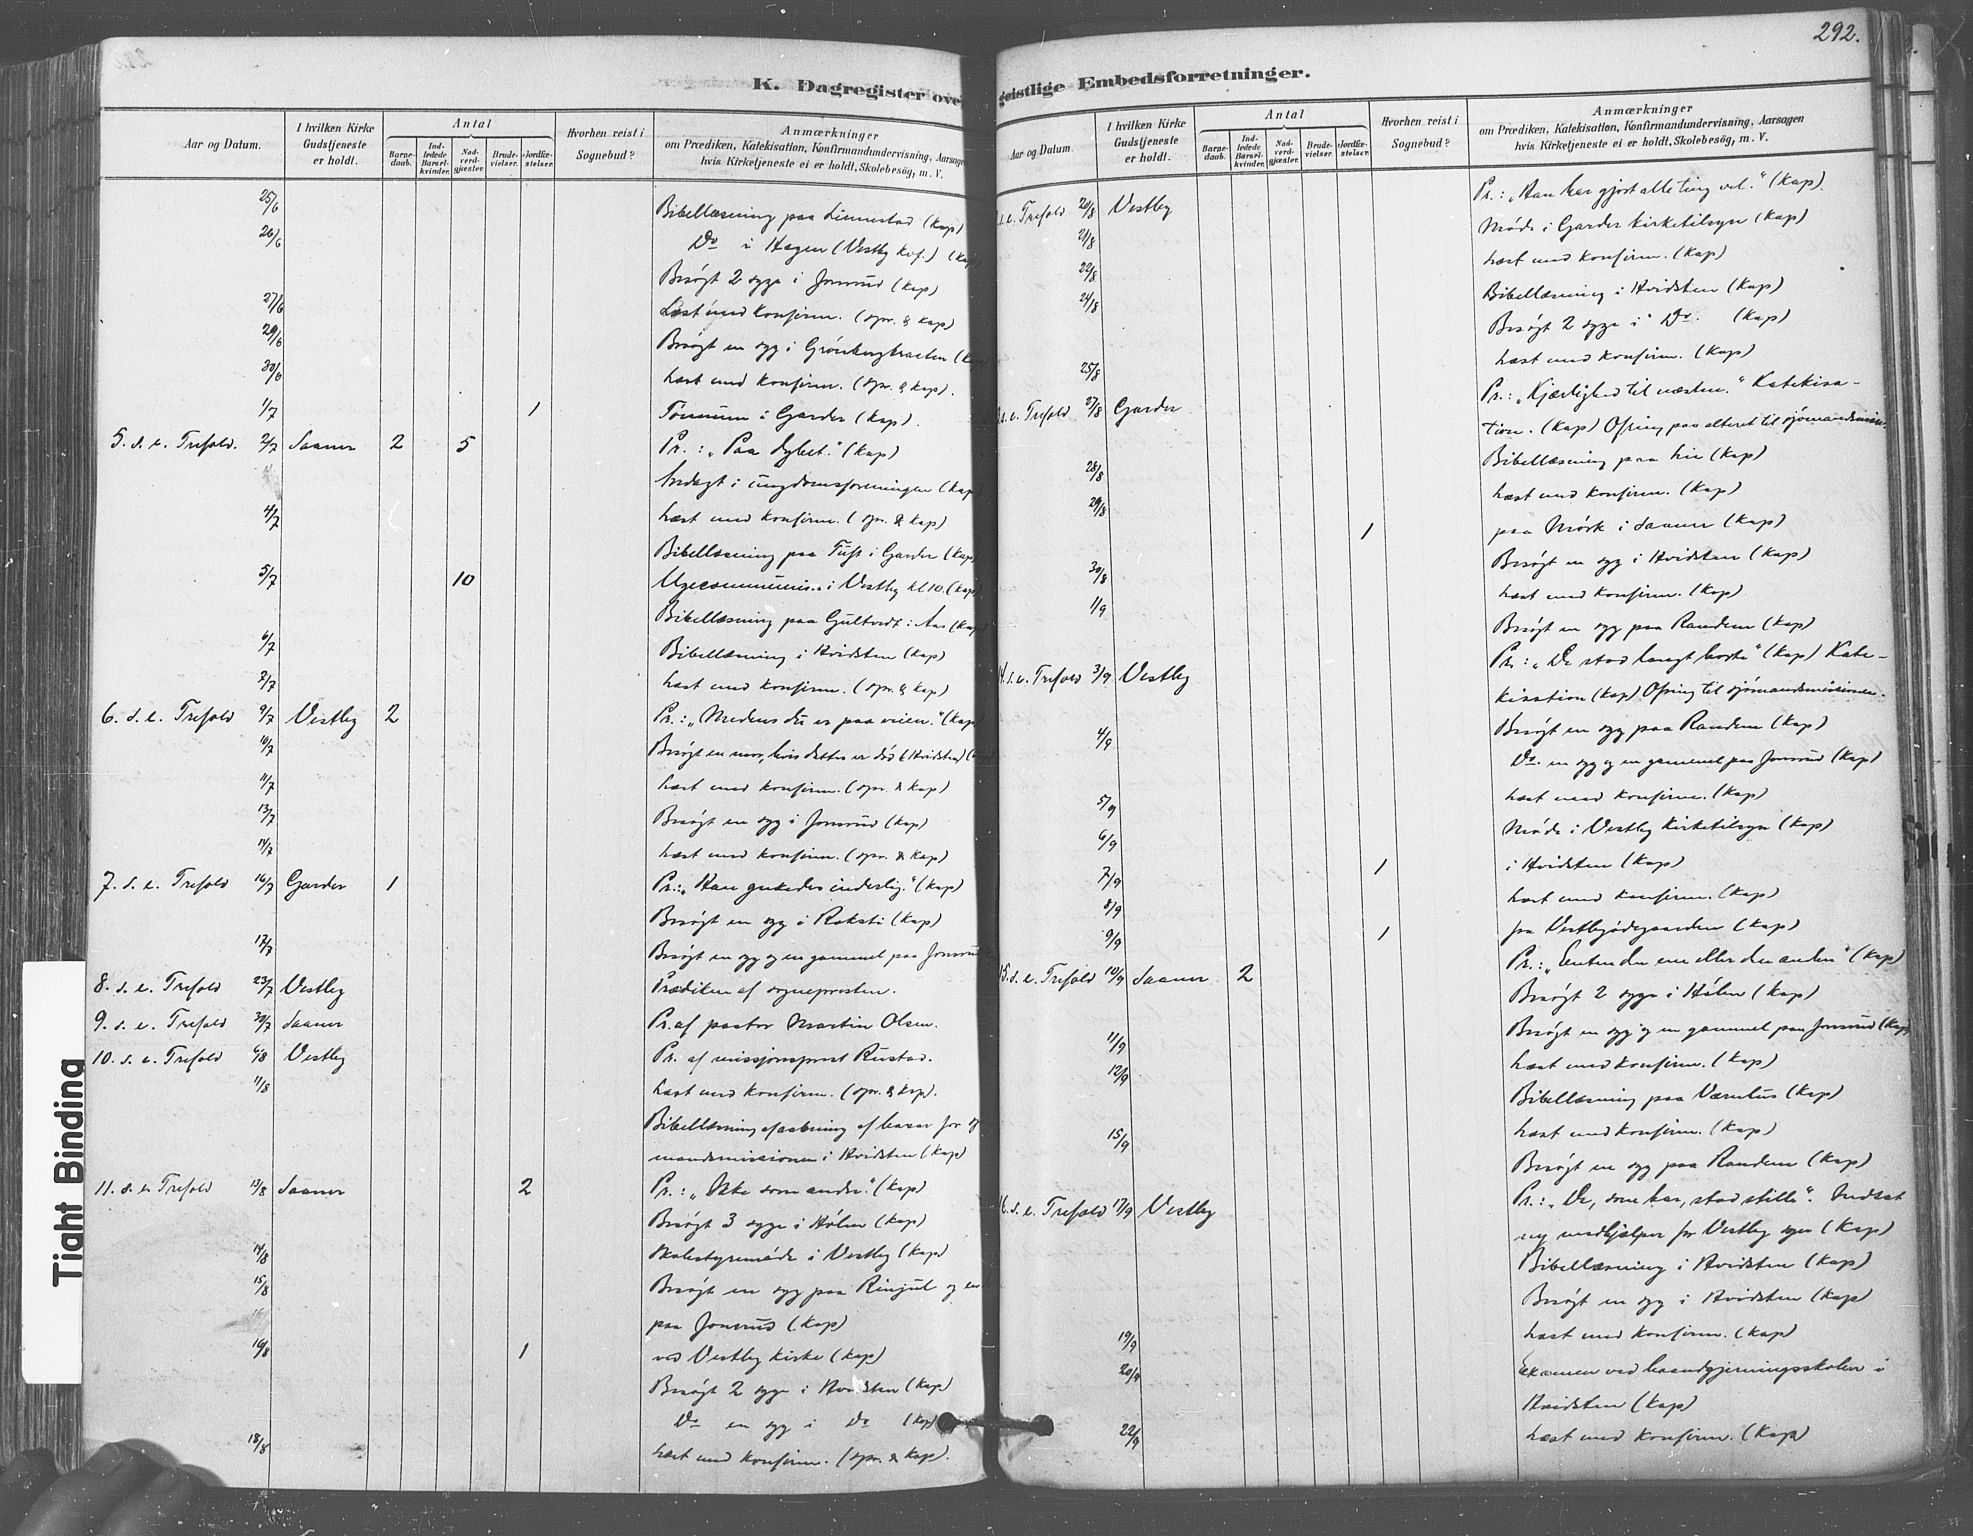 292.
K. Dagregister over geistlige Embedsforretninger.
Aar og Datum.
I hvilken Kirke Gudstjeneste er holdt.
Antal
Barnedaab.
Indledede Barselkvinder.
Nadverdgjæster.
Brudevielser.
Jordfæstelser.
Hvorhen reist i Sognebud?
Anmærkninger
om Prædiken, Katekisation, Konfirmandundervisning, Aarsagen
hvis Kirketjeneste ei er holdt, Skolebesög, m. V.
25/6 Bibellæsning paa Linnestad (Kap)
26/6 Do i Hagen (Vestby Kof.) (Kap)
Besøgt 2 syge i Jonsrud (Kap)
27/6 Læst med Konfirm. (spr. & Kap)
29/6 Besøgt en syg i Grönbergbraaten (Kap)
30/6 Læst med Konfirm. (spr. & Kap).
1/7 1 i Garder (Kap).
5. s. e. Trefold. 2/7 Saaner 2 5 Pr.: „Paa dybet." (Kap)
i ungdomsforeningen (Kap)
4/7 Læst med Konfirm. (spr. & Kap)
Bibellæsning paa Tuft i Garder (Kap)
5/7 10 i Vestby kl 10. (Kap)
Bibellæsning paa i Aas (Kap)
6/7 Bibellæsning i Hvidsten (Kap)
7/7 Læst med Konfirm. (spr. & Kap)
6. s. e. Trefold 9/7 Vestby 2 Pr.: „Medens du er paa veien." (Kap)
10/7 Besøgt en mor, hvis datter er död (Hvidsten)
11/7 Læst med Konfirm. (spr. & Kap)
13/7 Besøgt en syg i Jonsrud (Kap)
14/7 Læst med Konfirm. (spr. & Kap)
7. s. e. Trefold 16/7 Garder 1 Pr.: „Han ynkedes inderlig." (Kap)
Besøgt en syg i (Kap)
17/7 Besøgt en syg og en gammel paa Jonsrud
8. s. e. Trefold 23/7 Vestby Prædiken af sogneprosten.
9. s. e. Trefold 30/7 Saaner Pr. af pastor Martin Olsen.
10. s. e. Trefold 6/8 Vestby Pr. af missjonsprest Rustad.
11/8 Læst med Konfirm. (spr. & Kap).
Bibellæsning af bazar for
mandsmissionen i Hvidsten (Kap)
11. s. e. Trefold 13/8 Saaner 2 Pr.: „Ikke som andre." (Kap)
Besøgt 3 syge i Hölen (Kap)
14/8 Skolestyremöde i Vestby (Kap)
15/8 Besøgt en syg paa Rinjul og en
paa Jonsrud (Kap)
16/8 1 ved Vestby kirke (Kap)
Besøgt 2 syge i Hvidsten (Kap)
Do en syg i Do (Kap)
18/8 Læst med Konfirm. (spr. & Kap).
Aar og Datum.
I hvilken Kirke Gudstjeneste er holdt.
Antal
Barnedaab.
Indledede Barselkvinder.
Nadverdgjæster.
Brudevielser.
Jordfæstelser.
Hvorhen reist i Sognebud?
Anmærkninger
om Prædiken, Katekisation, Konfirmandundervisning, Aarsagen
hvis Kirketjeneste ei er holdt, Skolebesög, m. V.
s. e. Trefold 20/8 Vestby Pr.: „Han har gjort alle ting vel." (Kap).
21/8 Møde i Garder Kirketilsyn (Kap)
22/8 Læst med Konfirm. (Kap)
24/8 Bibellæsning i Hvidsten (Kap)
Besøgt 2 syge i Do. (Kap)
25/8 Læst med Konfirm. (Kap)
s. e. Trefold 27/8 Garder Pr.: „Kjærlighed til næsten." Katekisa-
tion. (Kap) Ofring paa alteret til sjömandsmis
28/8 Bibellæsning paa (Kap)
29/8 Læst med Konfirm. (Kap)
1 paa Mörk i Saaner (Kap)
30/8 Besøgt en syg i Hvidsten (Kap)
1/9 Læst med Konfirm. (Kap)
Besøgt en syg paa Randem (Kap)
14. s. e. Trefold 3/9 Vestby Pr.: „De stod langt borte" (Kap) Kate-
kisation (Kap) Ofring til sjömandsmissionen.
4/9 Besøgt en syg paa Randem (Kap)
Do. en syg og en gammel paa Jonsrud (Kap)
5/9 Læst med Konfirm. (Kap)
6/9 Møde i Vestby Kirketilsyn (Kap)
7/9 1 i Hvidsten (Kap)
8/9 Læst med Konfirm. (Kap)
9/9 1 fra Vestbyödegaarden (Kap)
15. s. e. Trefold 10/9 Saaner 2 Pr.: „Enten den ene eller den anden" (Kap)
Besøgt 2 syge i Hölen (Kap)
11/9 Besøgt en syg og en gammel paa Jonsrud (Kap)
12/9 Læst med Konfirm. (Kap)
Bibellæsning paa (Kap)
15/9 Læst med Konfirm. (Kap)
Besøgt en syg paa Randem (Kap)
s. e. Trefold 17/9 Vestby Pr.: „De, som bar, stod stille". Indsat
ny medhjælper for Vestby sogn (Kap)
Bibellæsning i Hvidsten (Kap)
Besøgt en syg i Hvidsten (Kap)
19/9 Læst med Konfirm. (Kap)
20/9 Examen ved haandgjerningsskolen i
Hvidsten (Kap)
22/9 Læst med Konfirm. (Kap)
Tight Binding